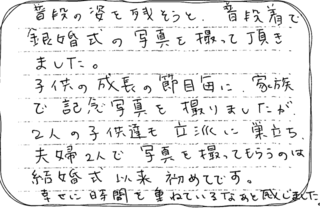 普段の姿を残そうと、普段着で
銀婚式の写真を撮って頂き
ました。
子供の成長の節目毎に、家族
で記念写真を撮りましたが、
2人の子供達も立派に巣立ち、
夫婦2人で写真を撮ってもらうのは
結婚式以来初めてです。
幸せに時間を重ねているなぁと感じました。